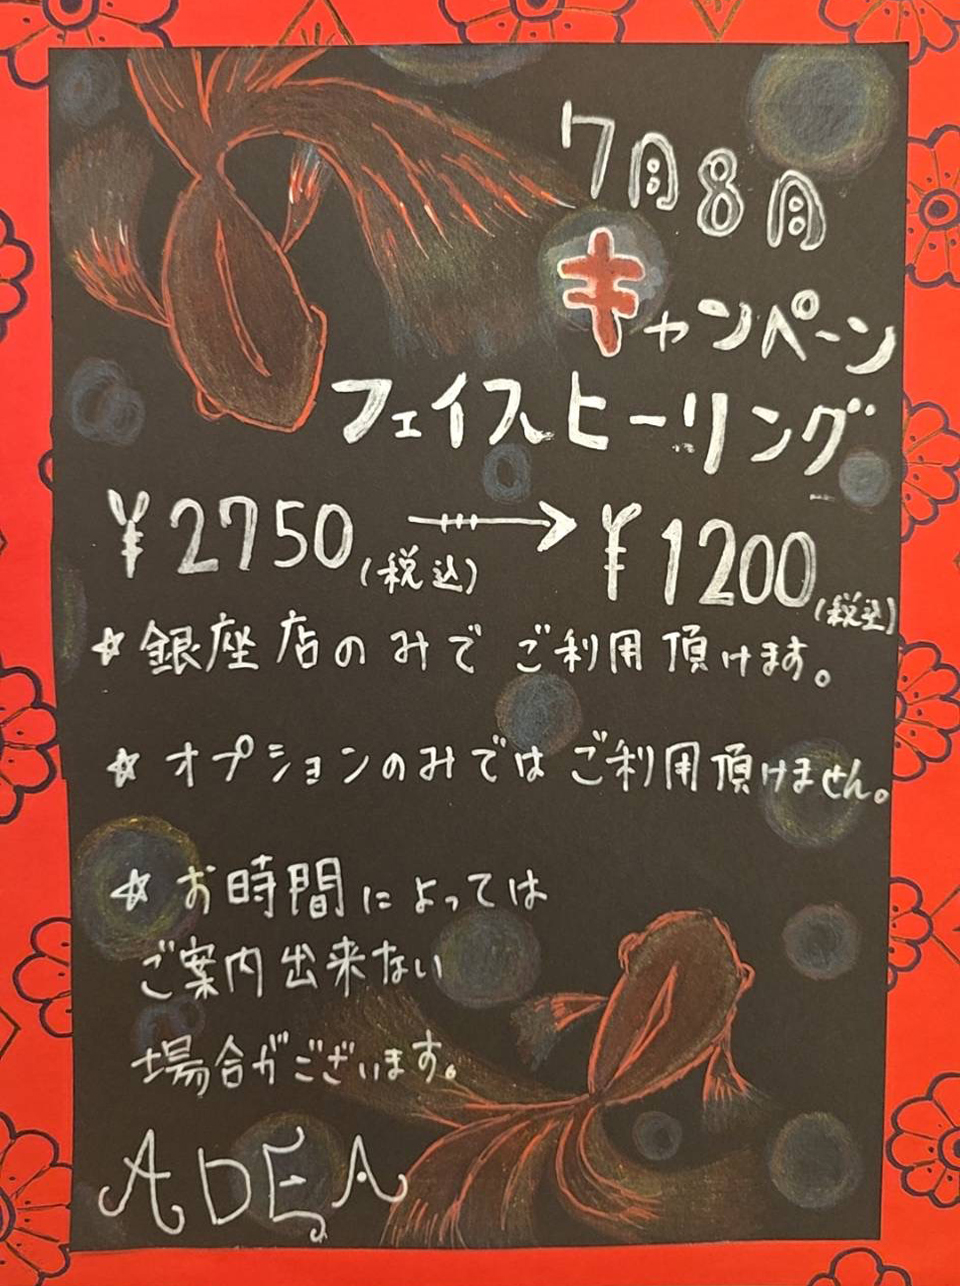 7月8月
キャンペーン
フェイスヒーリング
¥2750(税込) → ¥1200(税込)
☆銀座店のみでご利用頂けます。
☆オプションのみではご利用頂けません。
☆お時間によっては
ご案内出来ない
場合がございます。
ADEA